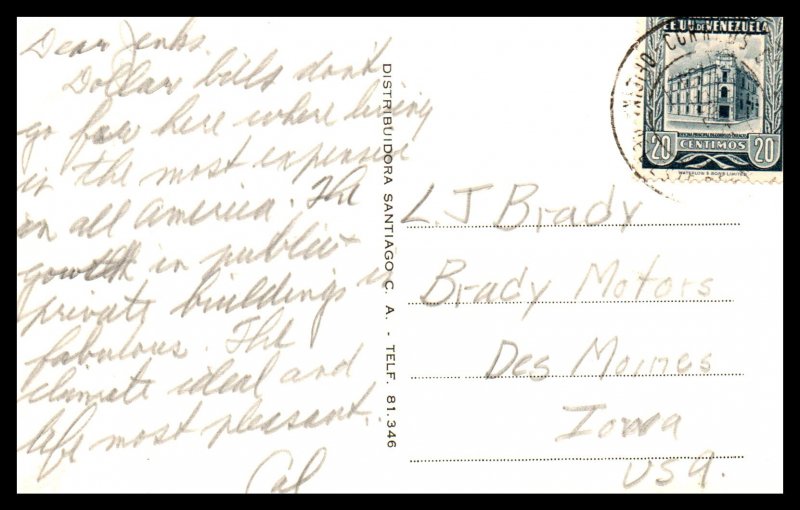 Dear Jenks.
Dollar bills don't
go far here where living
is the most expensive
in all America. The
growth in public
private buildings is
fabulous. The
climate ideal and
life most pleasant.
Cal
DISTRIBUIDORA SANTIAGO C. A. - TELF. 81.346
EE.UU. DE VENEZUELA
CORREOS
OFICINA PRINCIPAL DE CORREOS CARACAS
20 CENTIMOS 20
WATERLOW & SONS LIMITED.
L. J Brady
Brady Motors
Des Moines
Iowa
USA.